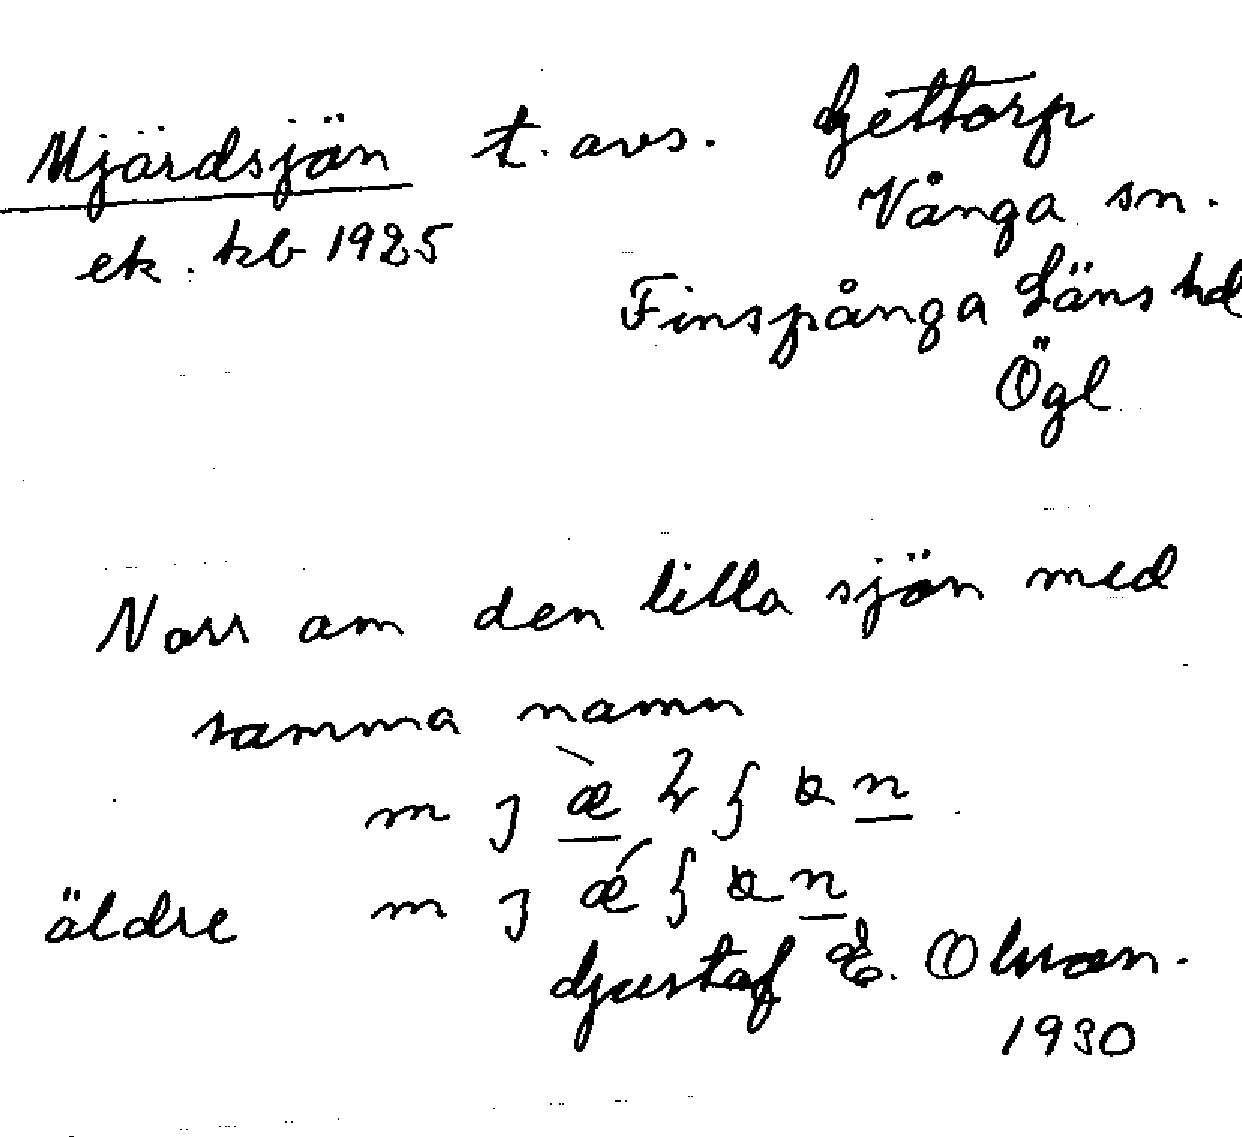 Mjärdsjön t. avs. Gettorp
Vånga sn.
ek. kb 1925
Finspånga Läns hd
Ögl
Norr om den lilla sjön med
samma namn
äldre
Gustaf E. Olsson.
1930